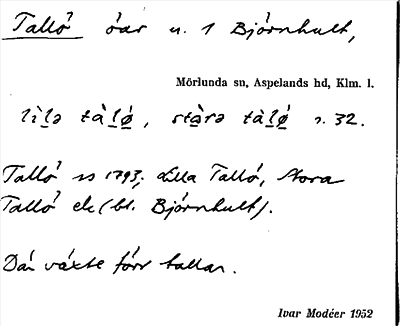 Tallö öar u. 1 Björnhult,
Mörlunda sn, Aspelands hd, Klm. l.
lìlə tàlø̀, stàrə tàlø̀ s. 32.
Tallö ss 1793; Lilla Tallö, Stora
Tallö ek (bl. Björnhult).
Där växte förr tallar.
Ivar Modéer 1952